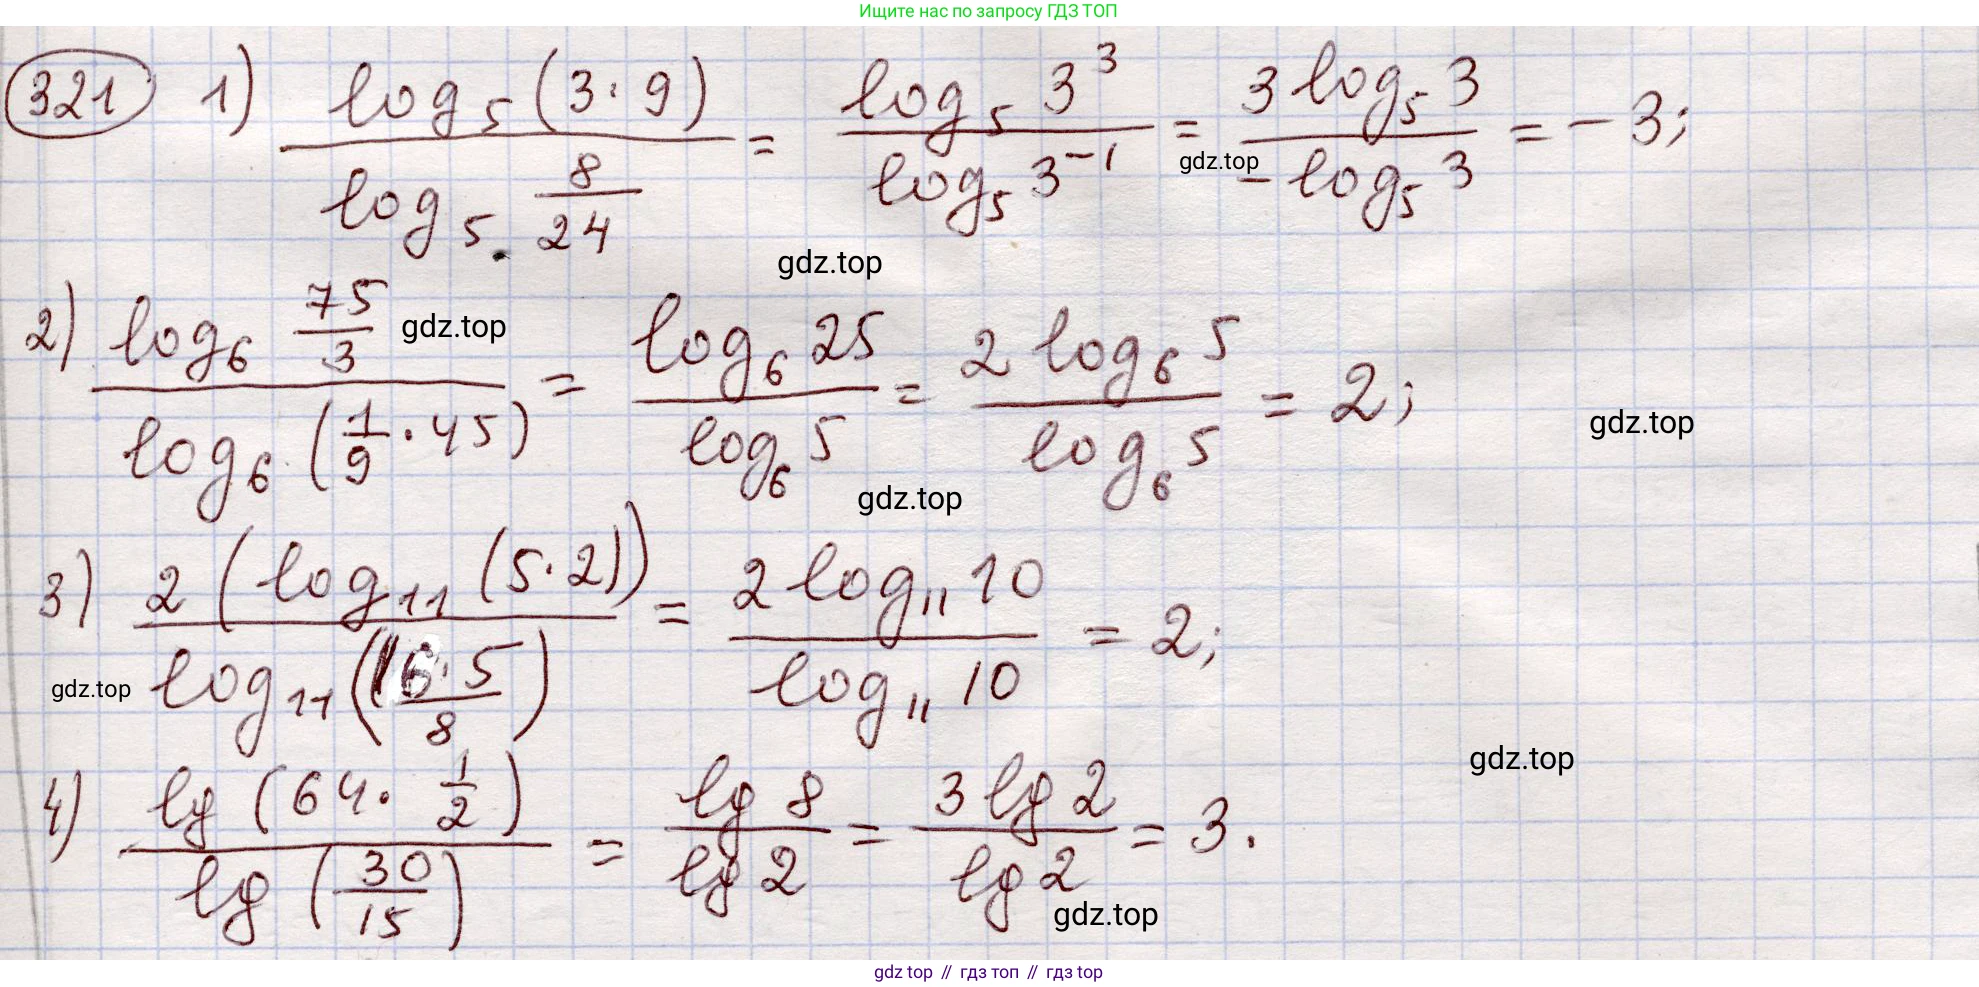 Ищите нас по запросу ГДЗ ТОП
321 1) log₅(3·9) / log₅ 8/24 = log₅ 3³ / log₅ 3⁻¹ = 3 log₅ 3 / - log₅ 3 = - 3;
gdz.top
gdz.top
2) log₆ 75/3 / log₆ (1/9 · 45) = log₆ 25 / log₆ 5 = 2 log₆ 5 / log₆ 5 = 2;
gdz.top
gdz.top
gdz.top
3) 2 (log₁₁ (5·2)) / log₁₁ (16·5/8) = 2 log₁₁ 10 / log₁₁ 10 = 2;
gdz.top
gdz.top
4) lg (64 · 1/2) / lg (30/15) = lg 8 / lg 2 = 3 lg 2 / lg 2 = 3.
gdz.top
gdz top // гдз топ // гдз top